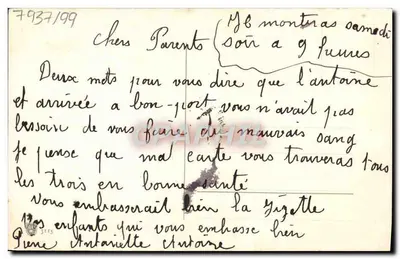 7937/99
Il monteras samedi
soir a 9 heures
chers Parents
Deux mots pour vous dire que l'antoine
et arrivée a bon-port vous n'avait pas
bessoin de vous faire de mauvais sang
je pense que ma carte vous trouveras tous
les trois en bonne santé
Vous embrasserait bien la Gizette
Vos enfants qui vous embrasse bien
Pierre Antoinette Antoine